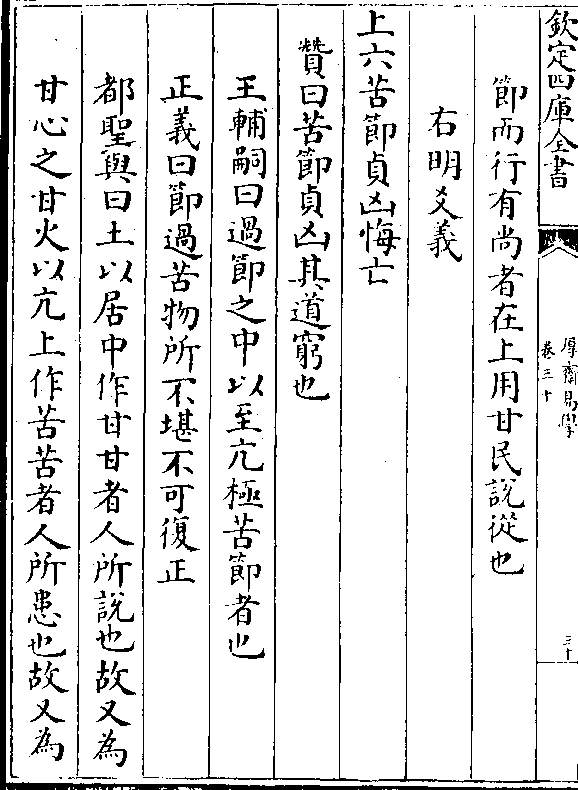 欽定四庫全書
厚齋易學
卷三十
三十
節而行有尚者在上用甘民說從也
右明爻義
上六苦節貞凶悔亡
贊曰苦節貞凶其道窮也
王輔嗣曰過節之中以至亢極苦節者也
正義曰節過苦物所不堪不可復正
都聖與曰土以居中作甘甘者人所說也故又為
甘心之甘火以亢上作苦苦者人所患也故又為